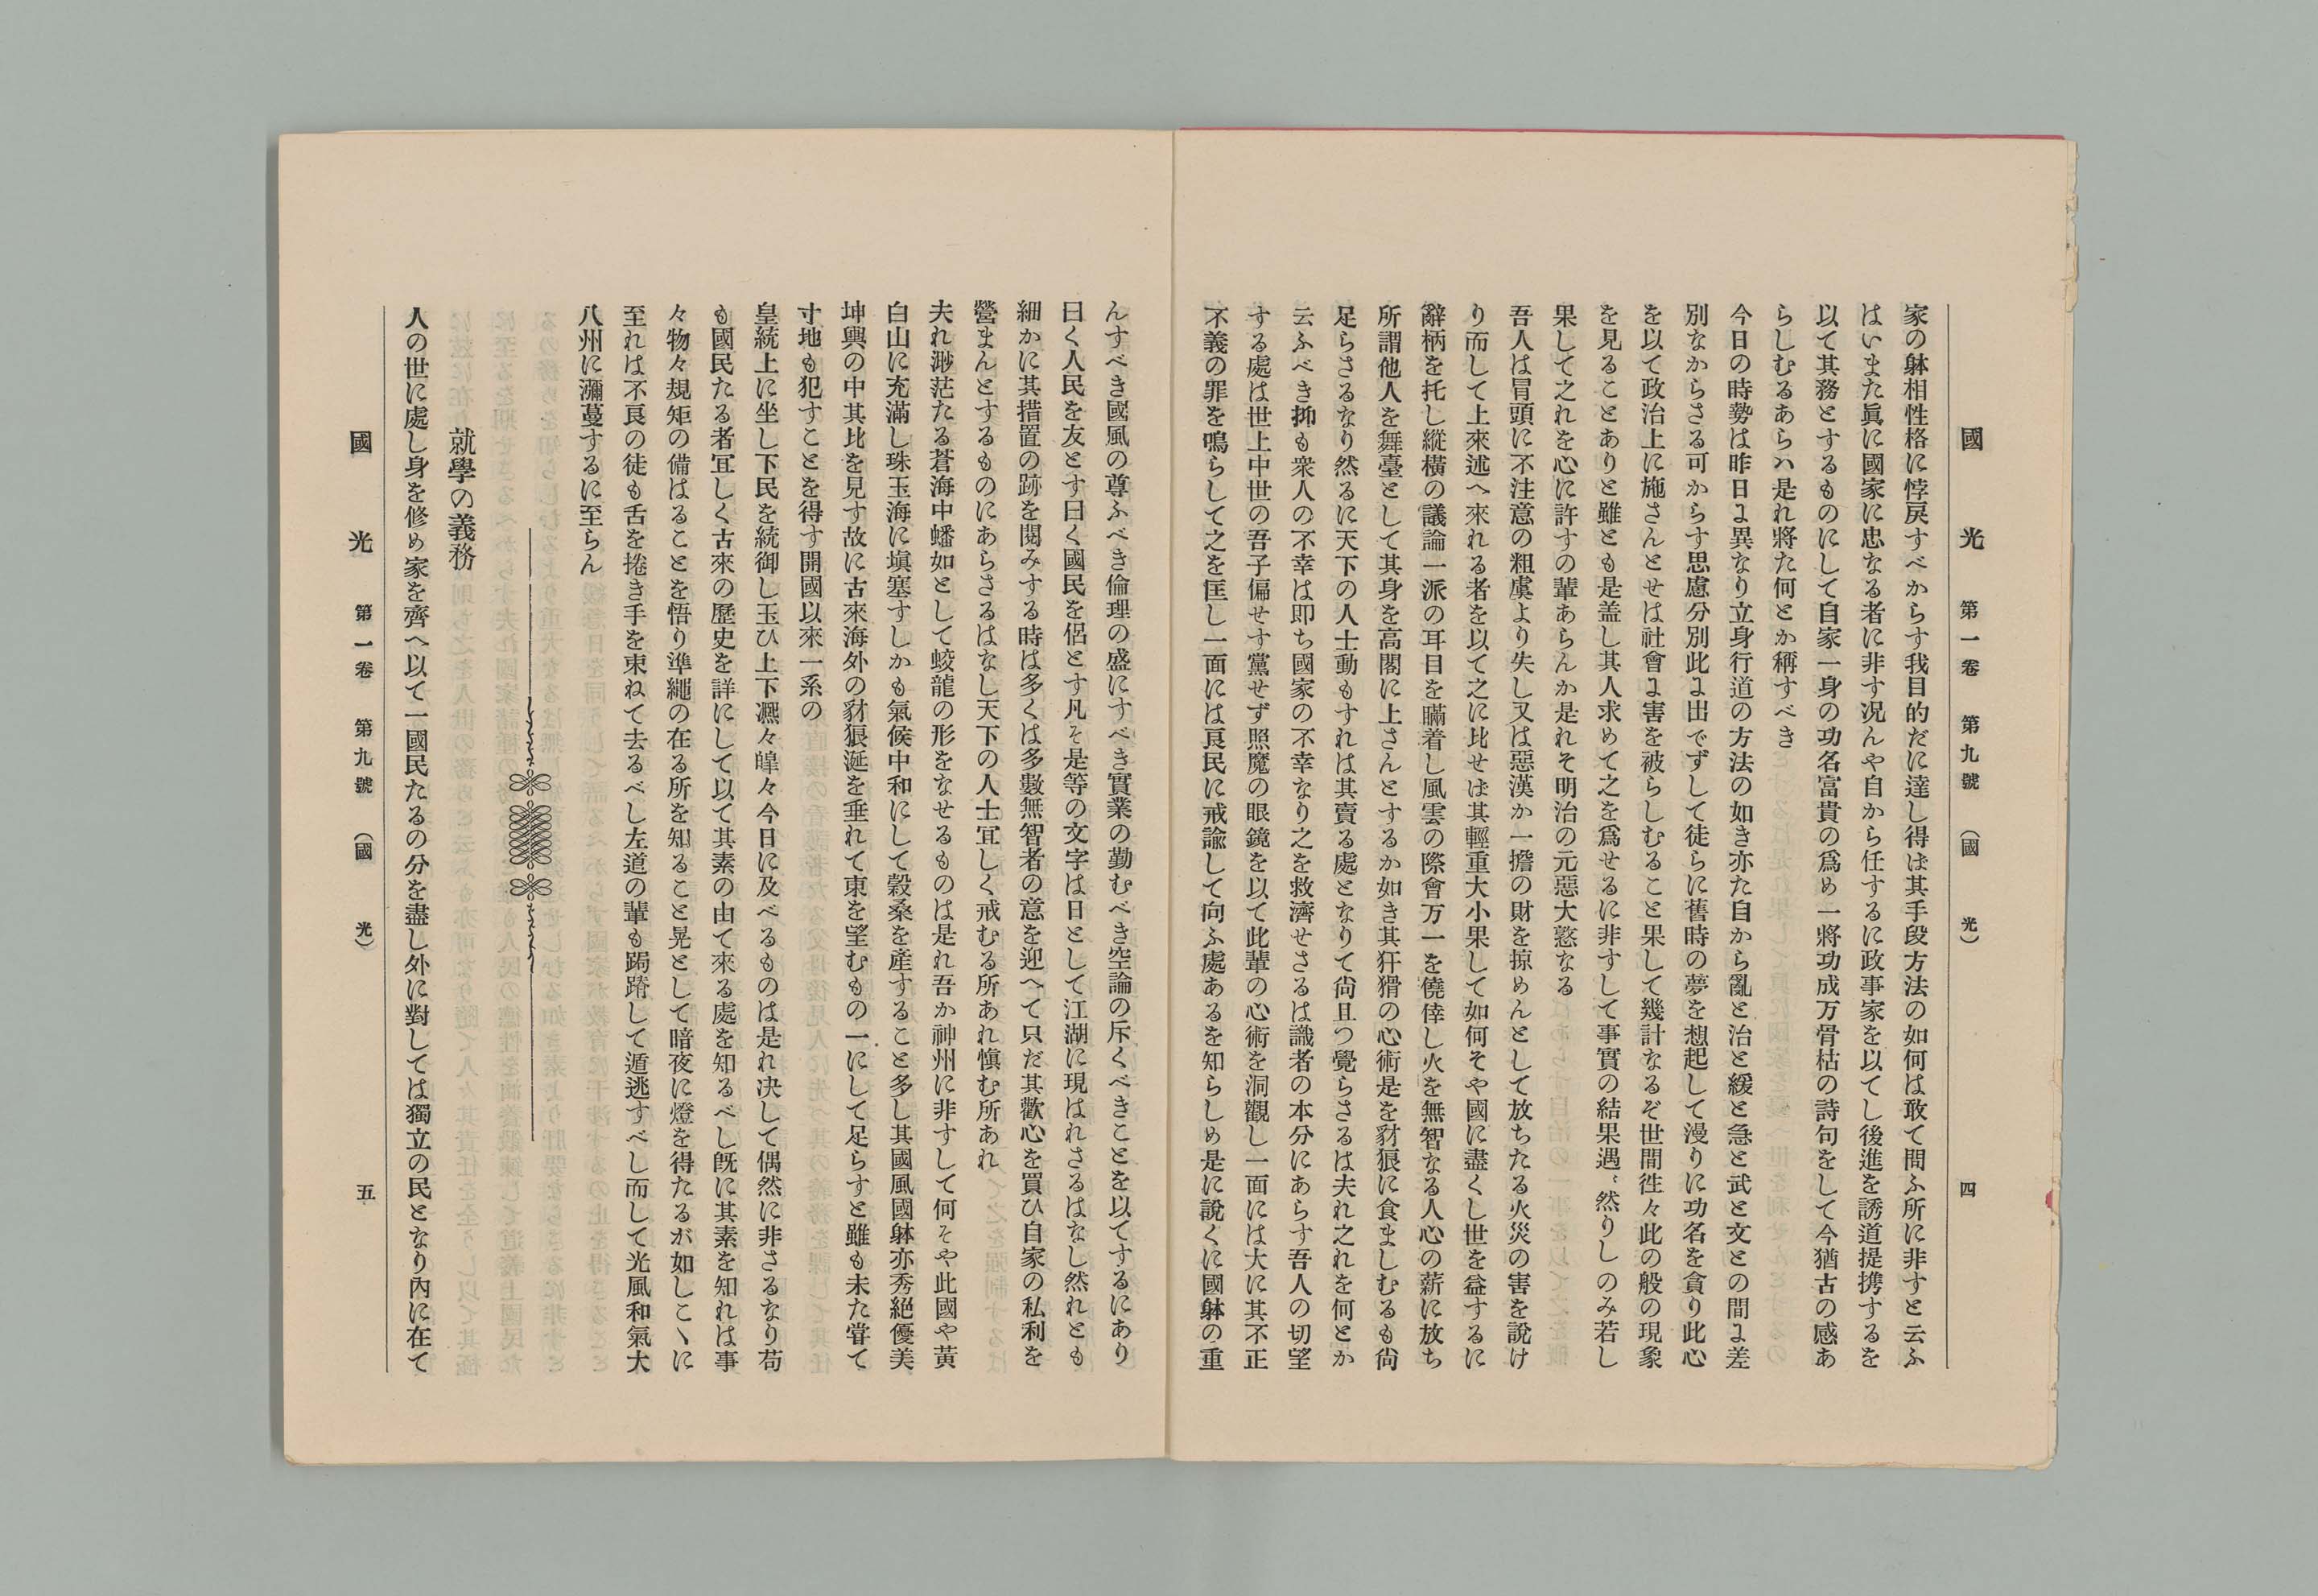 國光 第一卷 第九號 (國光) 四
家の躰相性格に悖戻すべからす我目的だに達し得は其手段方法の如何は敢て問ふ所に非すと云ふ
はいまた眞に國家に忠なる者に非す况んや自から任するに政事家を以てし後進を誘道提携するを
以て其務とするものにして自家一身の功名富貴の爲め一將功成万骨枯の詩句をして今猶古の感あ
らしむるあらハ是れ將た何とか稱すべき
今日の時勢は昨日よ異なり立身行道の方法の如き亦た自から亂と治と緩と急と武と文との間よ差
別なからさる可からす思慮分別此よ出でずして徒らに舊時の夢を想起して漫りに功名を貪り此心
を以て政治上に施さんとせは社會よ害を被らしむること果して幾計なるぞ世間徃々此の般の現象
を見ることありと雖とも是盖し其人求めて之を爲せるに非すして事實の結果遇〻然りしのみ若し
果して之れを心に許すの輩あらんか是れそ明治の元惡大憝なる
吾人は冒頭に不注意の粗虞より失し又は惡漢か一擔の財を掠めんとして放ちたる火災の害を說け
り而して上來述へ來れる者を以て之に比せは其輕重大小果して如何そや國に盡くし世を益するに
辭柄を托し縱橫の議論一派の耳目を瞞着し風雲の際會万一を僥倖し火を無智なる人心の薪に放ち
所謂他人を舞臺として其身を高閣に上さんとするか如き其犴猾の心術是を豺狼に食ましむるも尙
足らさるなり然るに天下の人士動もすれは其賣る處となりて尙且つ覺らさるは夫れ之れを何とか
云ふべき抑も衆人の不幸は即ち國家の不幸なり之を救濟せさるは識者の本分にあらす吾人の切望
する處は世上中世の吾子偏せす黨せず照魔の眼鏡を以て此輩の心術を洞觀し一面には大に其不正
不義の罪を鳴らして之を匡し一面には良民に戒諭して向ふ處あるを知らしめ是に說くに國躰の重
んすべき國風の尊ふべき倫理の盛にすべき實業の勤むべき空論の斥くべきことを以てするにあり
曰く人民を友とす曰く國民を侶とす凡そ是等の文字は日として江湖に現はれさるはなし然れとも
細かに其措置の跡を閱みする時は多くは多數無智者の意を迎へて只だ其歡心を買ひ自家の私利を
營まんとするものにあらさるはなし天下の人士冝しく戒むる所あれ愼む所あれ
夫れ渺茫たる蒼海中蟠如として蛟龍の形をなせるものは是れ吾か神州に非すして何そや此國や黃
白山に充滿し珠玉海に塡塞すしかも氣候中和にして穀桑を產すること多し其國風國躰亦秀絕優美
坤輿の中其比を見す故に古來海外の豺狼涎を垂れて東を望むもの一にして足らすと雖も未た甞て
寸地も犯すことを得す開國以來一系の
皇統上に坐し下民を統御し玉ひ上下凞々皥々今日に及べるものは是れ决して偶然に非さるなり苟
も國民たる者冝しく古來の歷史を詳にして以て其素の由て來る處を知るべし旣に其素を知れは事
々物々規矩の備はることを悟り準繩の在る所を知ること晃として暗夜に燈を得たるが如しこヽに
至れは不良の徒も舌を捲き手を束ねて去るべし左道の輩も跼蹐して遁逃すべし而して光風和氣大
八州に瀰蔓するに至らん
就學の義務
人の世に處し身を修め家を齊へ以て一國民たるの分を盡し外に對しては獨立の民となり內に在て
國光 第一卷 第九號 (國光) 五